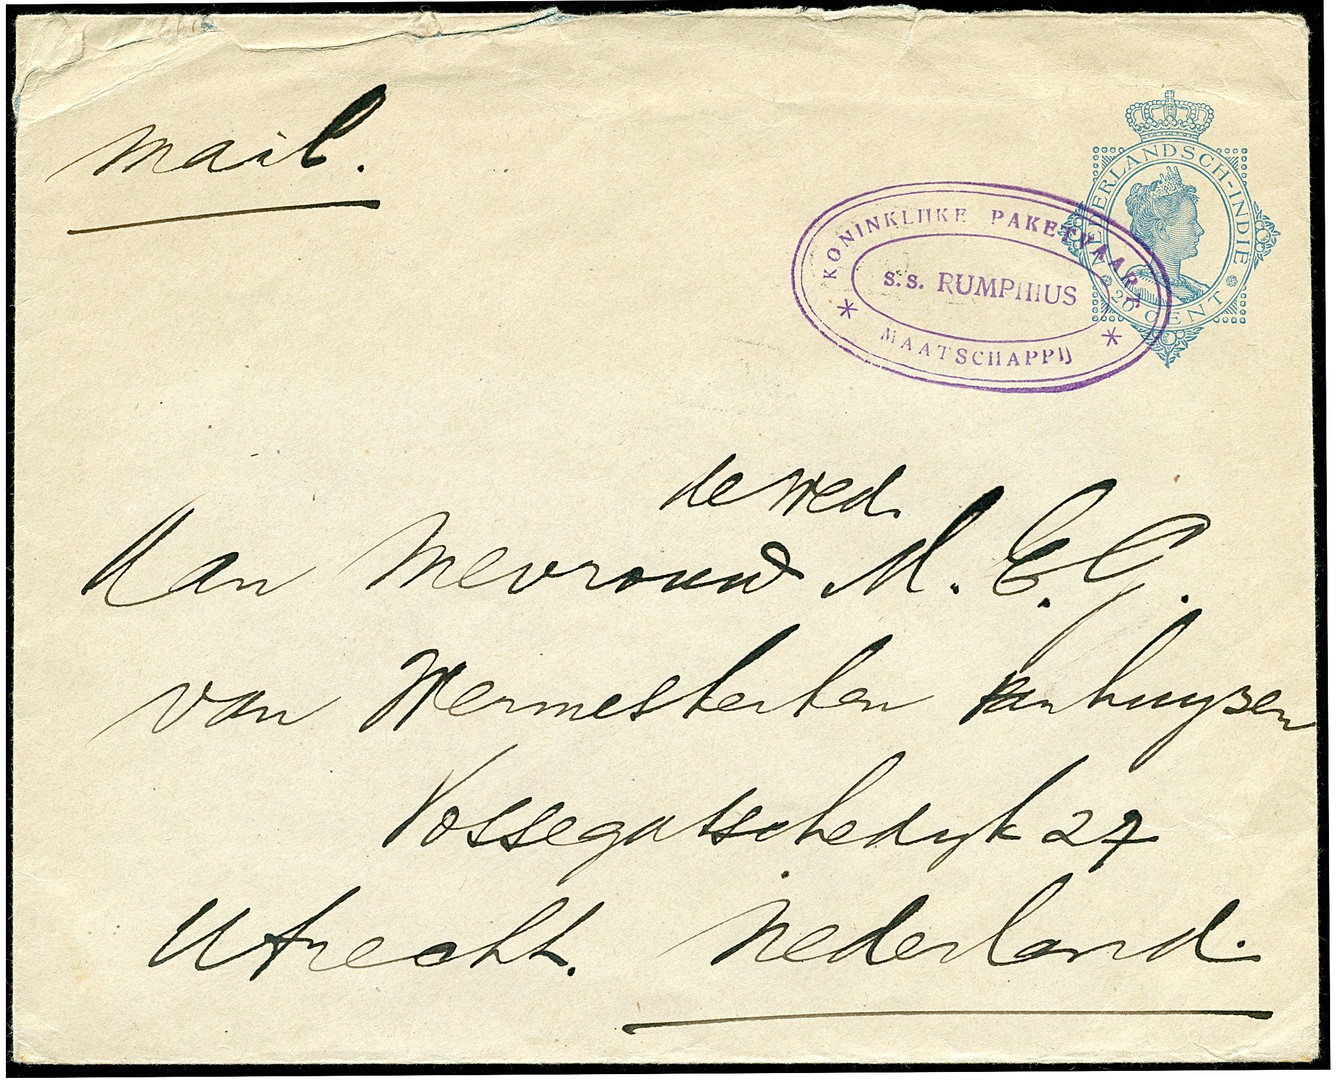 mail.
NEDERLANDSCH-INDIË
20 CENT
KONINKLIJKE PAKETVAART
s.s. RUMPHIUS
MAATSCHAPPIJ
de Wed.
Aan Mevrouw M. E. G.
van Wermeskerken van huyzen
Vossegatschedyk 27
Utrecht. Nederland.